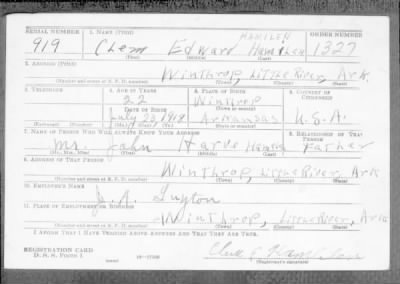 SERIAL NUMBER 1. NAME (Print) ORDER NUMBER
HAMILEN
919 Clem Edward Hamilen 1327
(First) (Middle) (Last)
2. ADDRESS (Print)
Winthrop, Little River, Ark
(Number and street or R. F. D. number) (Town) (County) (State)
3. TELEPHONE 4. AGE IN YEARS 5. PLACE OF BIRTH 6. COUNTRY OF CITIZENSHIP
22 Winthrop
DATE OF BIRTH (Town or county)
July 23, 1918 Arkansas U.S.A.
(Exchange) (Number) (Mo.) (Day) (Yr.) (State or country)
7. NAME OF PERSON WHO WILL ALWAYS KNOW YOUR ADDRESS 8. RELATIONSHIP OF THAT PERSON
Mr. John Harve Father
(Mr., Mrs., Miss) (First) (Middle) (Last)
9. ADDRESS OF THAT PERSON
Winthrop, Little River, Ark
(Number and street or R. F. D. number) (Town) (County) (State)
10. EMPLOYER'S NAME
11. PLACE OF EMPLOYMENT OR BUSINESS
Winthrop, Little River, Ark
(Number and street or R. F. D. number) (Town) (County) (State)
I AFFIRM THAT I HAVE VERIFIED ABOVE ANSWERS AND THAT THEY ARE TRUE.
REGISTRATION CARD
D. S. S. FORM 1
(over)
(Registrant's signature)